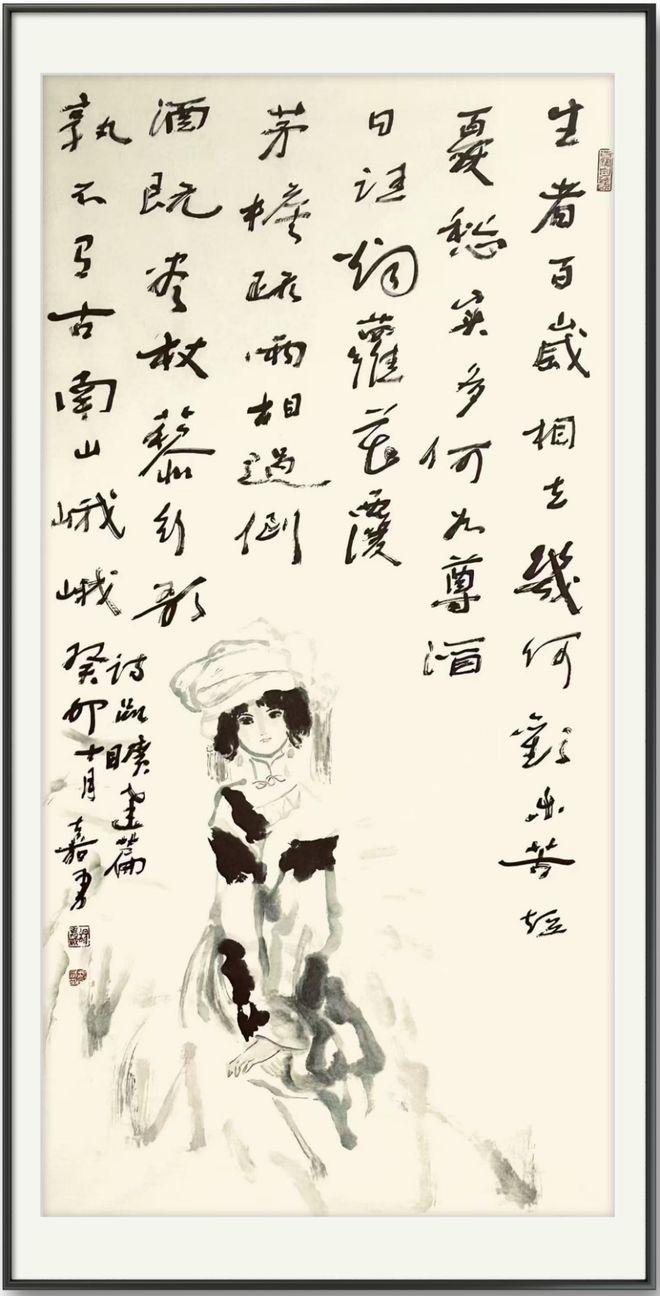 生者百歲相去幾何歡乐苦短
憂愁实多何如尊酒
日往烟蘿花覆
茅檐疏雨相過倒
酒既尽杖藜行歌
孰不有古南山峨峨
诗品曠達篇
癸卯十月嘉勇